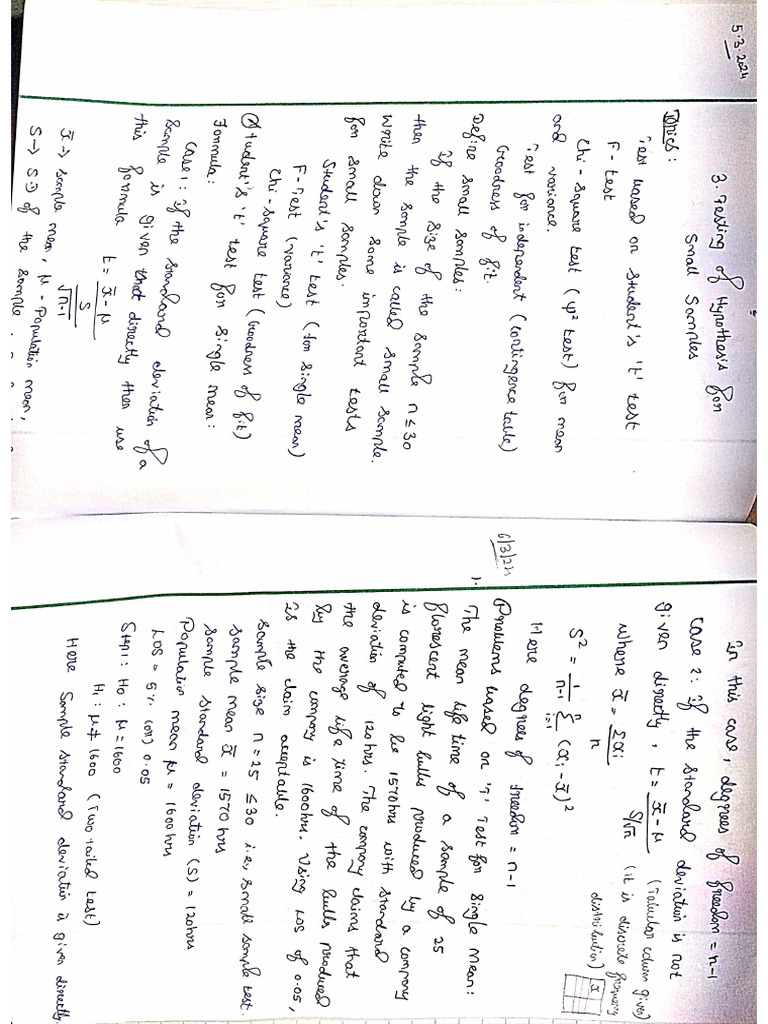 5.3.2024
3. Testing of Hypothesis for
Small Samples
Topics:
Test based on Student's 't' test
F-test
Chi-square test (ψ² test) for mean
and variance.
Test for independent (contingence table)
Goodness of fit.
Define small samples:
If the size of the sample n ≤ 30
then the sample is called small sample.
Write down some important tests
for small samples.
Student's 't' test (for single mean)
F-Test (variance)
Chi-square test (Goodness of fit)
Student's 't' test for single mean:
Formula:
Case 1: if the standard deviation of a
sample is given that directly then use
this formula t = x̄ - μ / S/√n-1
x̄ → sample mean, μ - Population mean,
S → SD of the sample
In this case, degrees of freedom = n-1
Case 2: if the standard deviation is not
given directly, t = x̄ - μ / S/√n (Tabular column given)
where x̄ = Σxi / n (it is discrete frequency
distribution) x
S² = 1/n-1 Σ i=1 n (xi - x̄)²
Here degrees of freedom = n-1
6/3/24
Problems based on 'T' Test for single mean:
1. The mean life time of a sample of 25
florescent light bulbs produced by a company
is computed to be 1570hrs with standard
deviation of 120hrs. The company claims that
the average life time of the bulbs produced
by the company is 1600hrs. Using LOS of 0.05,
is the claim acceptable.
Sample size n = 25 ≤ 30 i.e, small sample test.
Sample mean x̄ = 1570 hrs
Sample standard deviation (S) = 120hrs
Population mean μ = 1600hrs
LOS = 5% (or) 0.05
Step 1: H0 : μ = 1600
H1 : μ ≠ 1600 (Two tailed test)
Here Sample standard deviation is given directly.